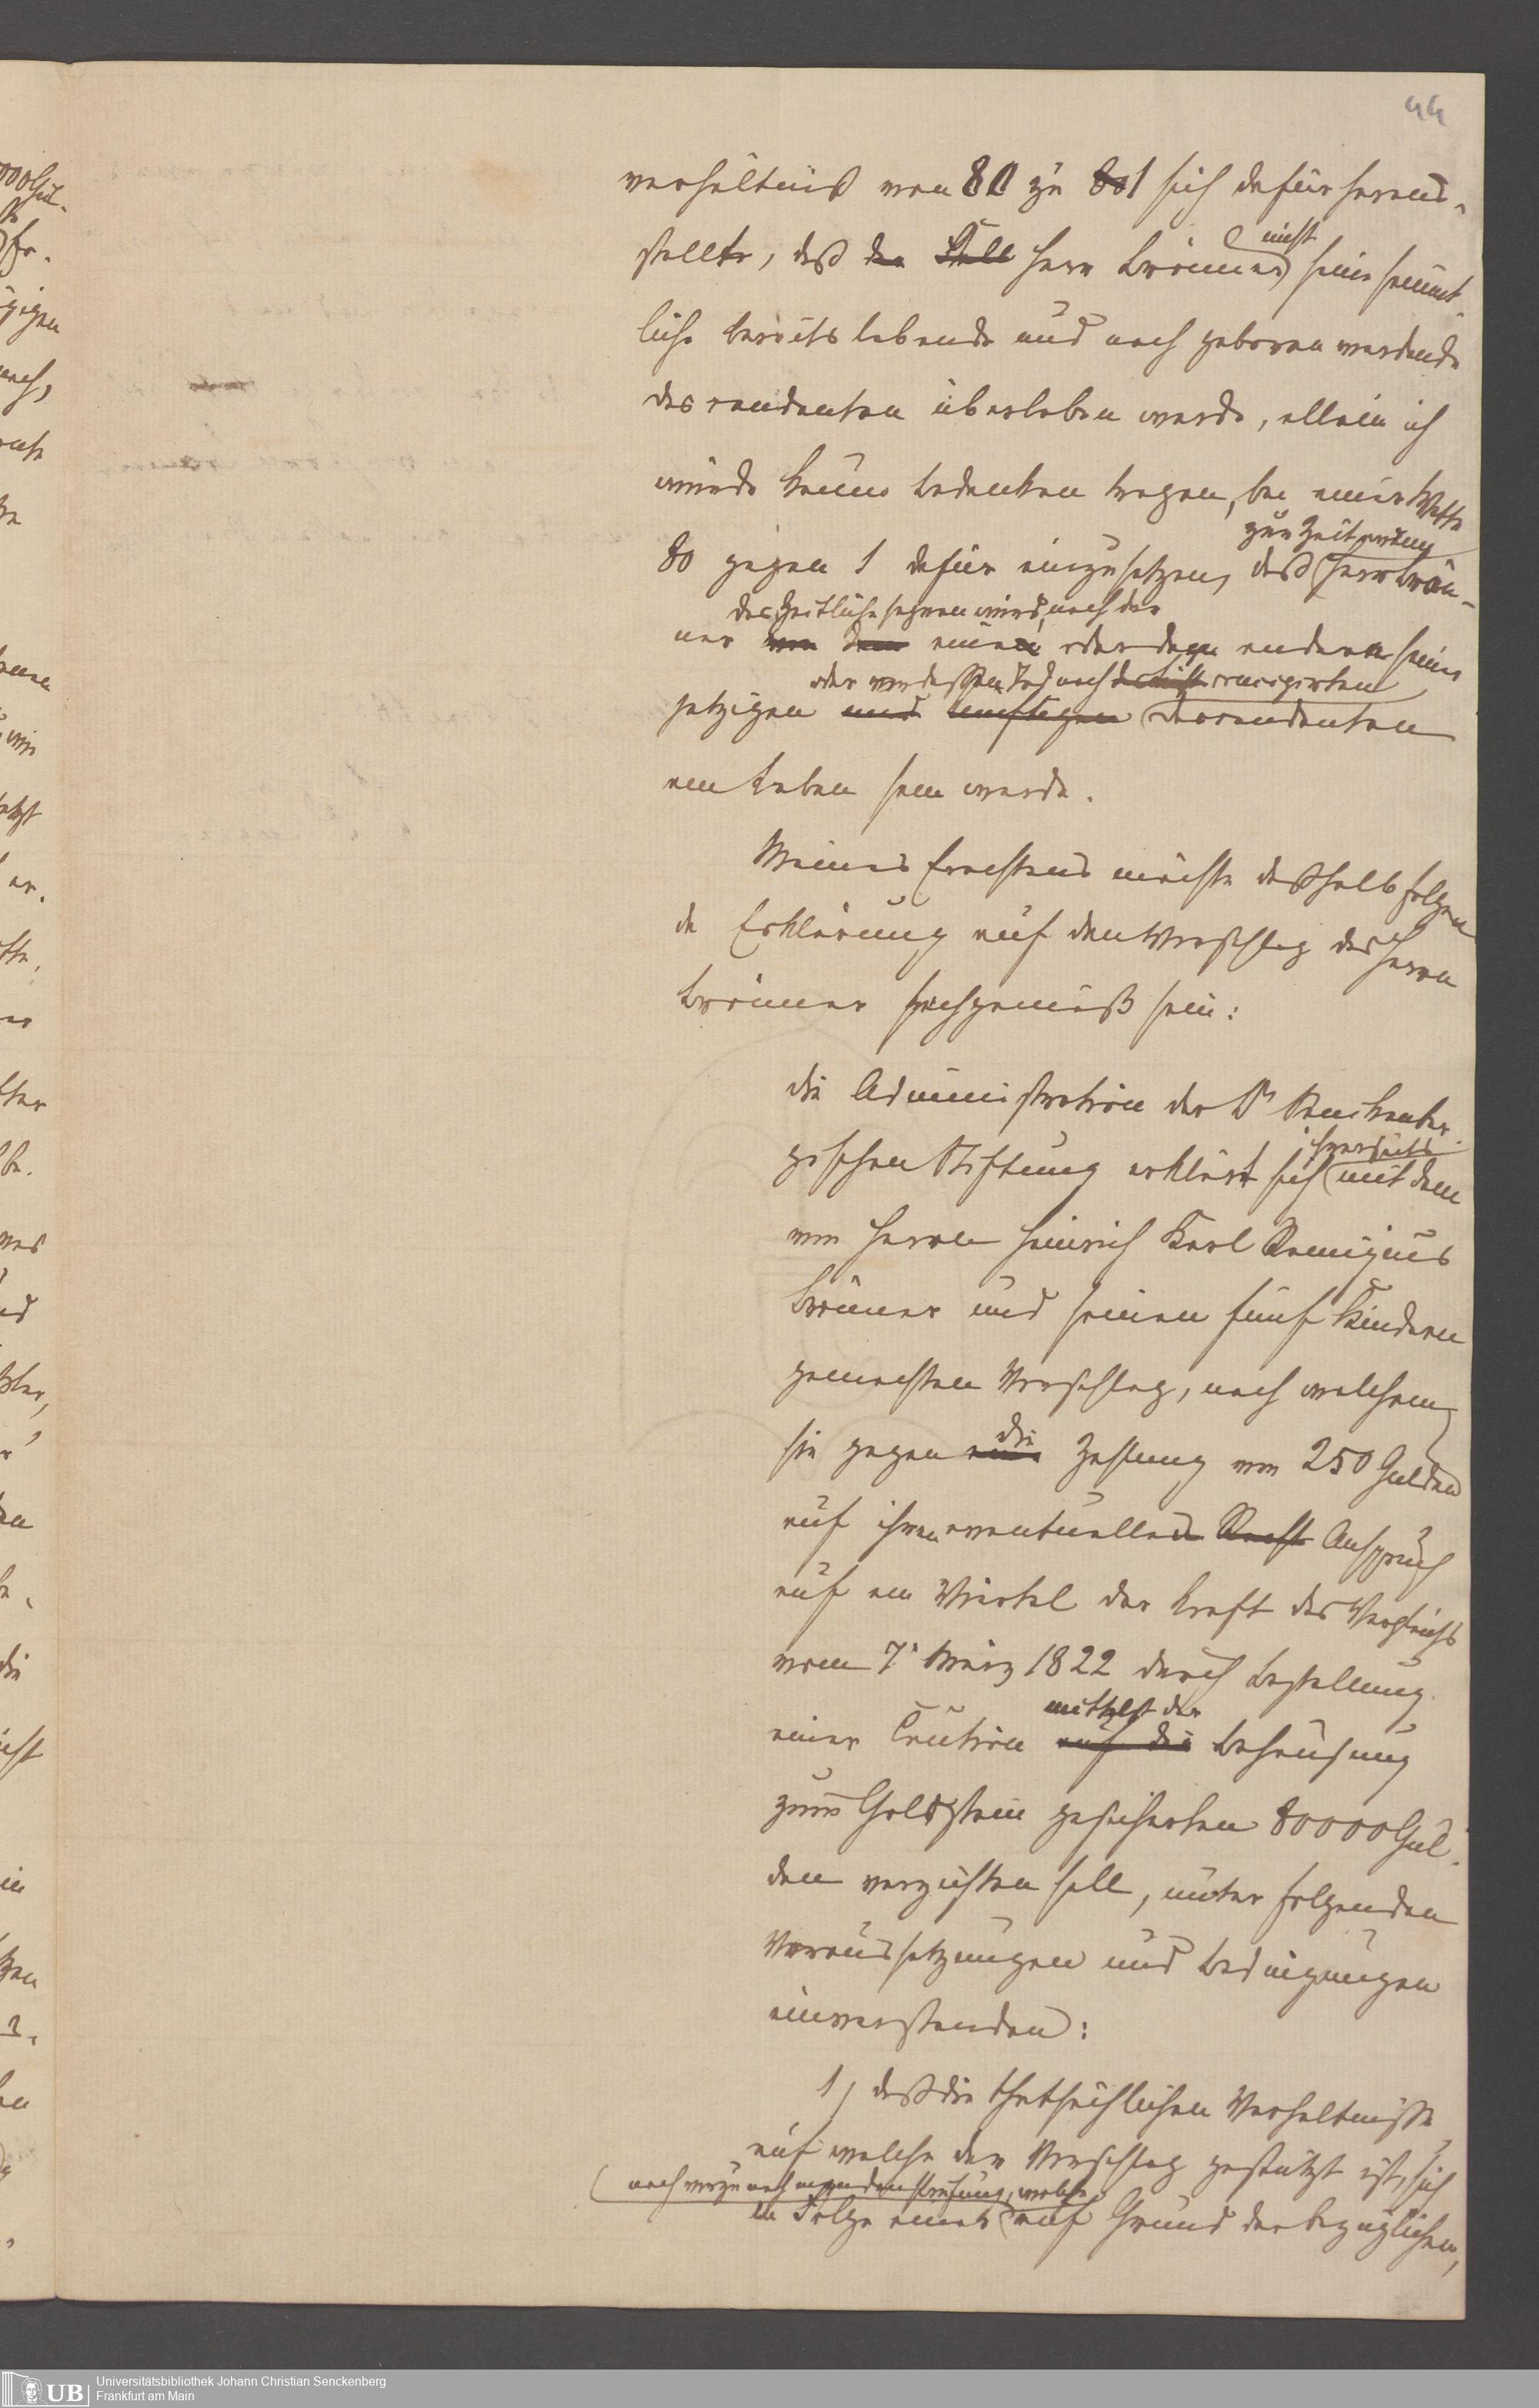 44
verhältniß von 80 zu 80 1 sich dafür heraus-
stellte, daß der Fall Herr Brönner nicht seine sämmt-
liche bereits lebende und noch geboren werdende
Descendenten überleben werde, allein ich
würde keine Bedenken tragen, bei einer Wette
80 gegen 1 dafür einzusetzen, daß zur Zeit wenn Herr Brön-
ner von dem das Zeitliche segnen wird, noch der eine oder der andere seiner
jetzigen und künftigen oder vor dessen Tod noch concipirten Descendenten
am Leben sein werde.
Meines Erachtens möchte deßhalb folgen
de Erklärung auf den Vorschlag des Herrn
Brönner sachgemäß sein:
die Administration der Dr Senckenber-
gischen Stiftung erklärt sich ihrerseits mit dem
von Herrn Heinrich Karl Remigius
Brönner und seinen fünf Kindern
gemachten Vorschlag, nach welchem
sie gegen eine die Zahlung von 250 Gulden
auf ihren eventuellen Recht Anspruch
auf ein Viertel der kraft des Vergleichs
vom 7. März 1822 durch Bestellung
einer Caution auf die mittelst der Behausung
zum Goldstein gesicherten 80000 Gul-
den verzichten soll, unter folgenden
Voraussetzungen und Bedingungen
einverstanden:
1, daß die thatsächlichen Verhältnisse,
auf welche der Vorschlag gestützt ist, sich
in Folge einer noch vorzunehmenden Prüfung, welche auf Grund der bezüglichen,
UB Universitätsbibliothek Johann Christian Senckenberg
Frankfurt am Main